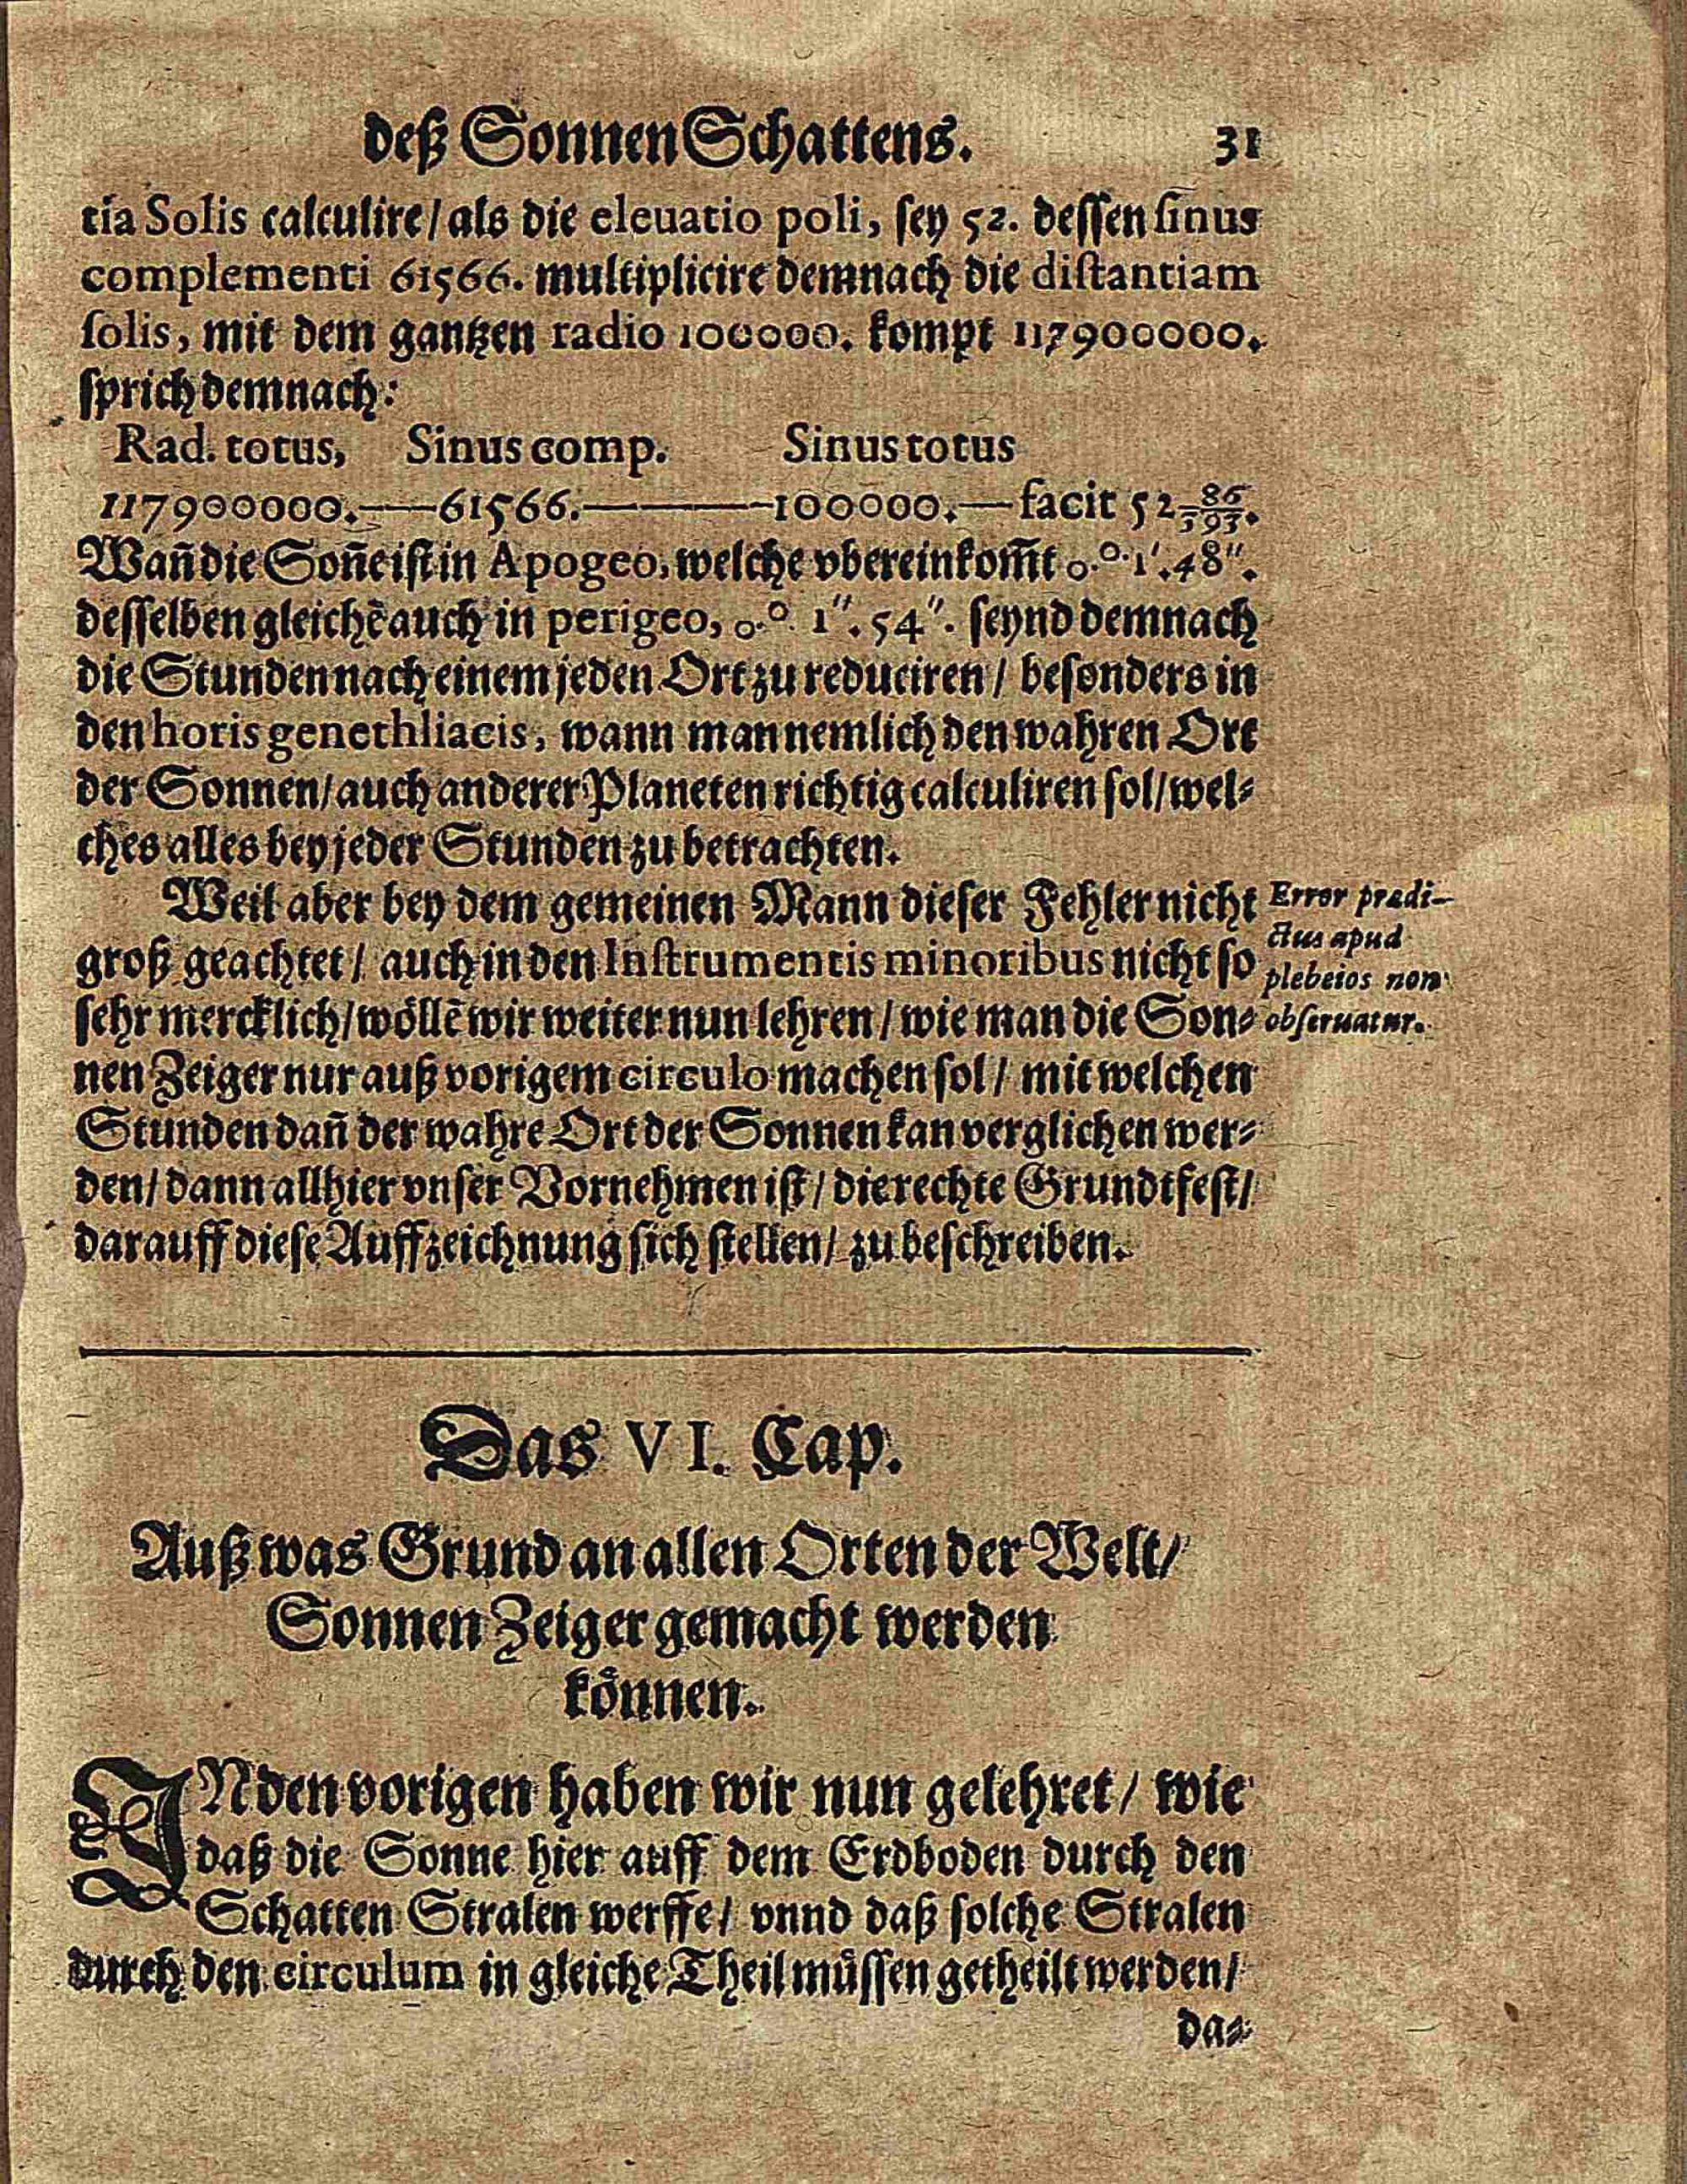 deß Sonnen Schattens. 31
tia Solis calculire/ als die eleuatio poli, sey 52. dessen sinus
complementi 61566. multiplicire demnach die distantiam
solis, mit dem gantzen radio 100000. kompt 117900000.
sprich demnach:
Rad. totus, Sinus comp. Sinus totus
117900000.——61566.———100000.—facit 52
Wañ die Soñe ist in Apogeo, welche vbereinkom̃t 0.° 1'. 48".
desselben gleichẽ auch in perigeo, 0.° 1". 54". seynd demnach
die Stunden nach einem jeden Ort zu reduciren/ besonders in
den horis genethliacis, wann man nemlich den wahren Ort
der Sonnen/ auch anderer Planeten richtig calculiren sol/ wel⸗
ches alles bey jeder Stunden zu betrachten.
Weil aber bey dem gemeinen Mann dieser Fehler nicht
groß geachtet/ auch in den Instrumentis minoribus nicht so
sehr mercklich/ wöllẽ wir weiter nun lehren/ wie man die Son⸗
nen Zeiger nur auß vorigem circulo machen sol/ mit welchen
Stunden dañ der wahre Ort der Sonnen kan verglichen wer⸗
den/ dann allhier vnser Vornehmen ist/ die rechte Grundtfest/
darauff diese Auffzeichnung sich stellen/ zu beschreiben.
Error prædi-
ctus apud
plebeios non
obseruatur.
Das VI. Cap.
Auß was Grund an allen Orten der Welt/
Sonnen Zeiger gemacht werden
können.
IN den vorigen haben wir nun gelehret/ wie
daß die Sonne hier auff dem Erdboden durch den
Schatten Stralen werffe/ vnnd daß solche Stralen
durch den circulum in gleiche Theil müssen getheilt werden/
da⸗